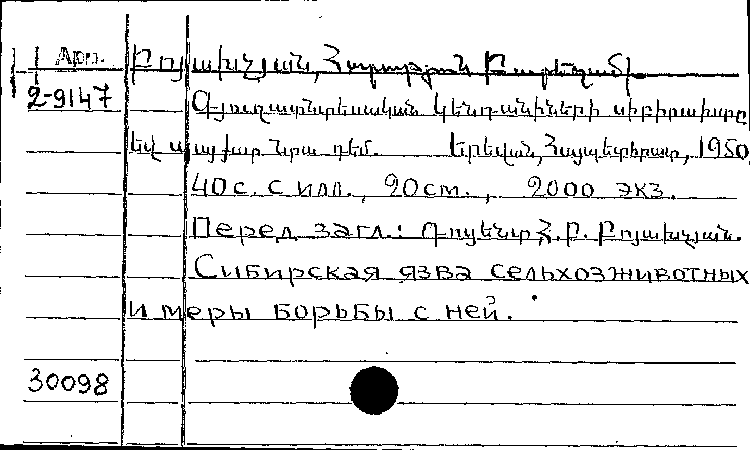 Арм. Բոյախչյան, Հարություն Բարեղամի
2-9147 Գյուղատնտեսական կենդանիների սիբիրախտը
եվ պայքար նրա դեմ. Երեվան, Հայպետհրատ, 1950
40 с. с илл., 20 см., 2000 экз.
Перед загл.: Դոցենտ Հ. Բ. Բոյախչյան.
Сибирская язва сельхозживотных
и меры борьбы с ней.
30098